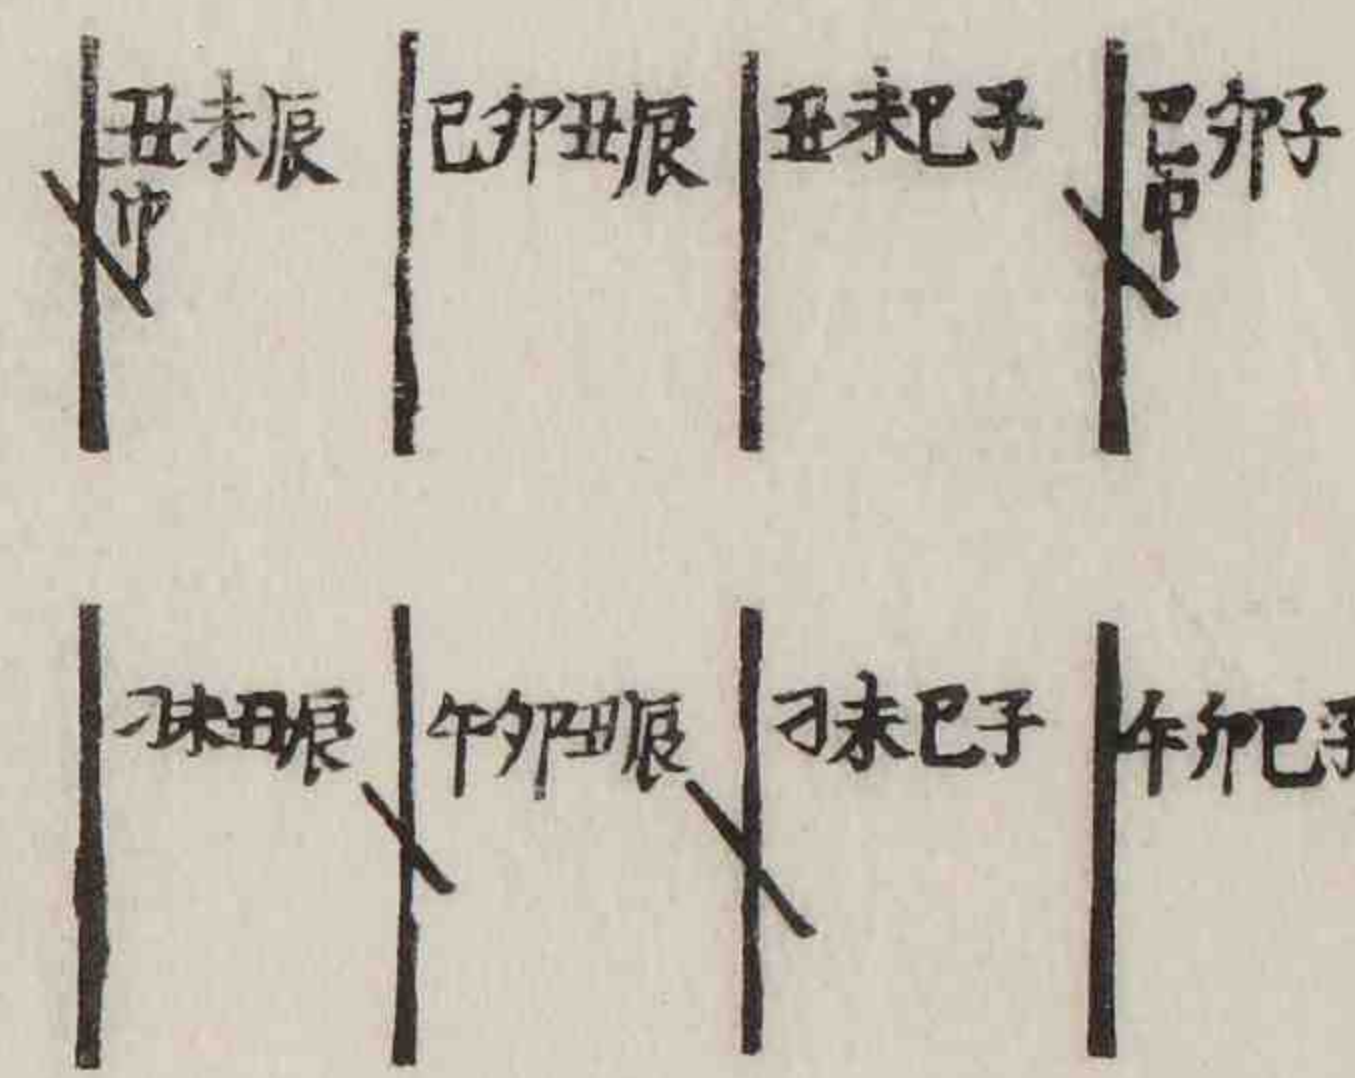 丑未辰
巳卯丑辰
丑未巳子
巳卯子
申
未丑辰
午卯丑辰
未巳子
午卯巳子